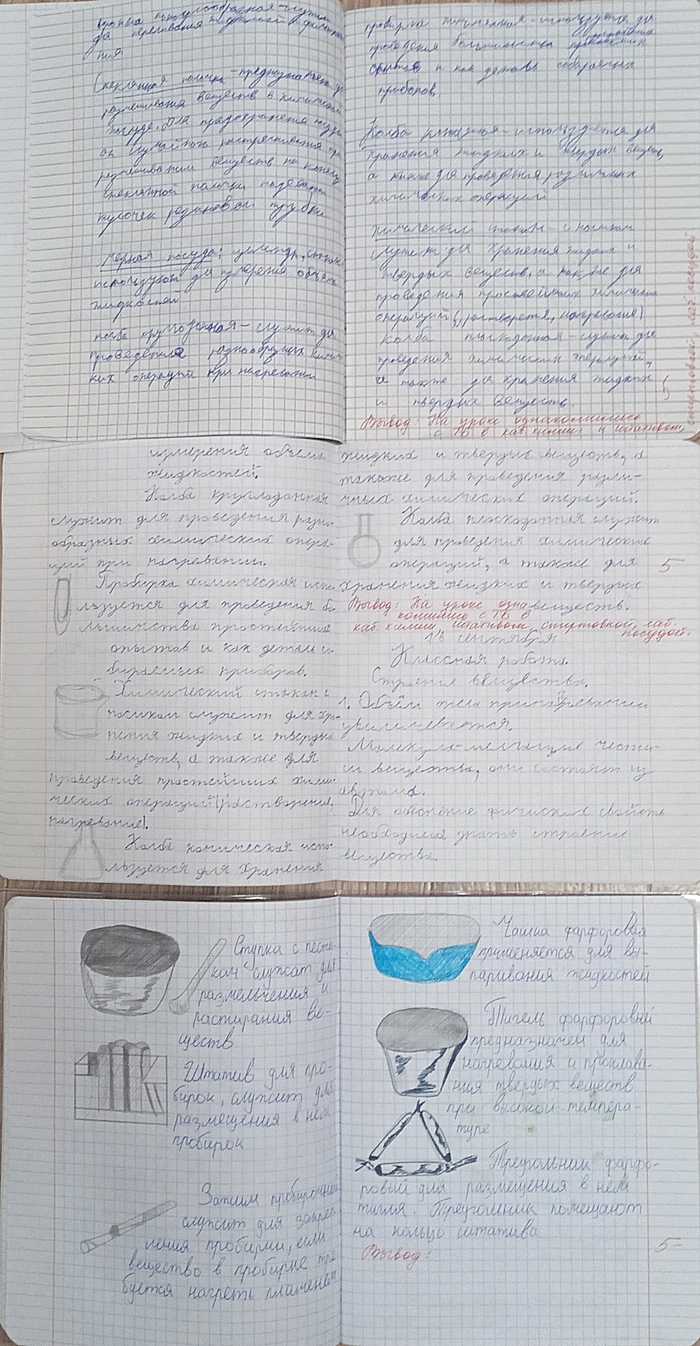 Стеклянная палочка - предназначена для
размешивания веществ в химической
посуде. Для предохранения посуды
размешивании веществ на конец
стеклянной палочки надевают
кусочек резиновой трубки
мерная посуда: цилиндр,
используют для измерения объёма
жидкостей
колба круглодонная - служит для
проведения разнообразных химичес
ких операций при нагревании
пробирка химическая - используется для
проведения большинства
опытов и как деталь собираемых
приборов
Колба коническая - используется для
хранения жидких и твердых веществ,
а также для проведения различных
химических операций
химический стакан - с носиком
служит для хранения жидких и
твердых веществ, а также для
проведения простейших химических
операций (растворения, нагревания)
колба плоскодонная - служит для
проведения химических операций,
а также для хранения жидких
и твердых веществ.
5
Вывод: На уроке ознакомились
с ТБ в каб химии и штативом,
спиртовкой, лаб посудой
измерения объема
жидкостей.
Колба круглодонная
служит для проведения разно-
образных химических опера-
ций при нагревании.
Пробирка химическая испо-
льзуется для проведения бо-
льшинства простейших
опытов и как деталь со-
бираемых приборов.
Химический стакан с
носиком служит для хра-
нения жидких и твердых
веществ, а также для
проведения простейших хими-
ческих операций (растворения,
нагревание).
Колба коническая испо-
льзуется для хранения
жидких и твердых веществ, а
также для проведения разли-
чных химических операций.
Колба плоскодонная служит
для проведения химических
операций, а также для
хранения жидких и твердых
веществ.
5
Вывод: На уроке озна
комились с ТБ в
каб химии, штативом, спиртовкой, лаб.
посудой.
14 сентября
Классная работа.
Строение вещества.
1. Объём тела при нагревании
увеличивается.
Молекула-мельчащие части-
цы вещества, они состоят из
атома.
Для обяснение физических свойств
необходимо знать строение
вещества.
Ступка с пести-
ком служат для
размельчения и
растирания ве-
ществ
Штатив для про-
бирок, служит для
размещения в нем
пробирок
Зажим пробирочный
служит для закреп-
ления пробирки, если
вещество в пробирке тре
буется нагреть пламенем
Чашка фарфоровая
применяется для вы-
паривания жидкостей
Тигель фарфоровый
предназначен для
нагревания и прокалива-
ния твердых веществ
при высокой темпера-
туре
Треугольник фарфо-
ровый для размещения в нем
тигля. Треугольник помещают
на кольцо штатива
Вывод:
5-